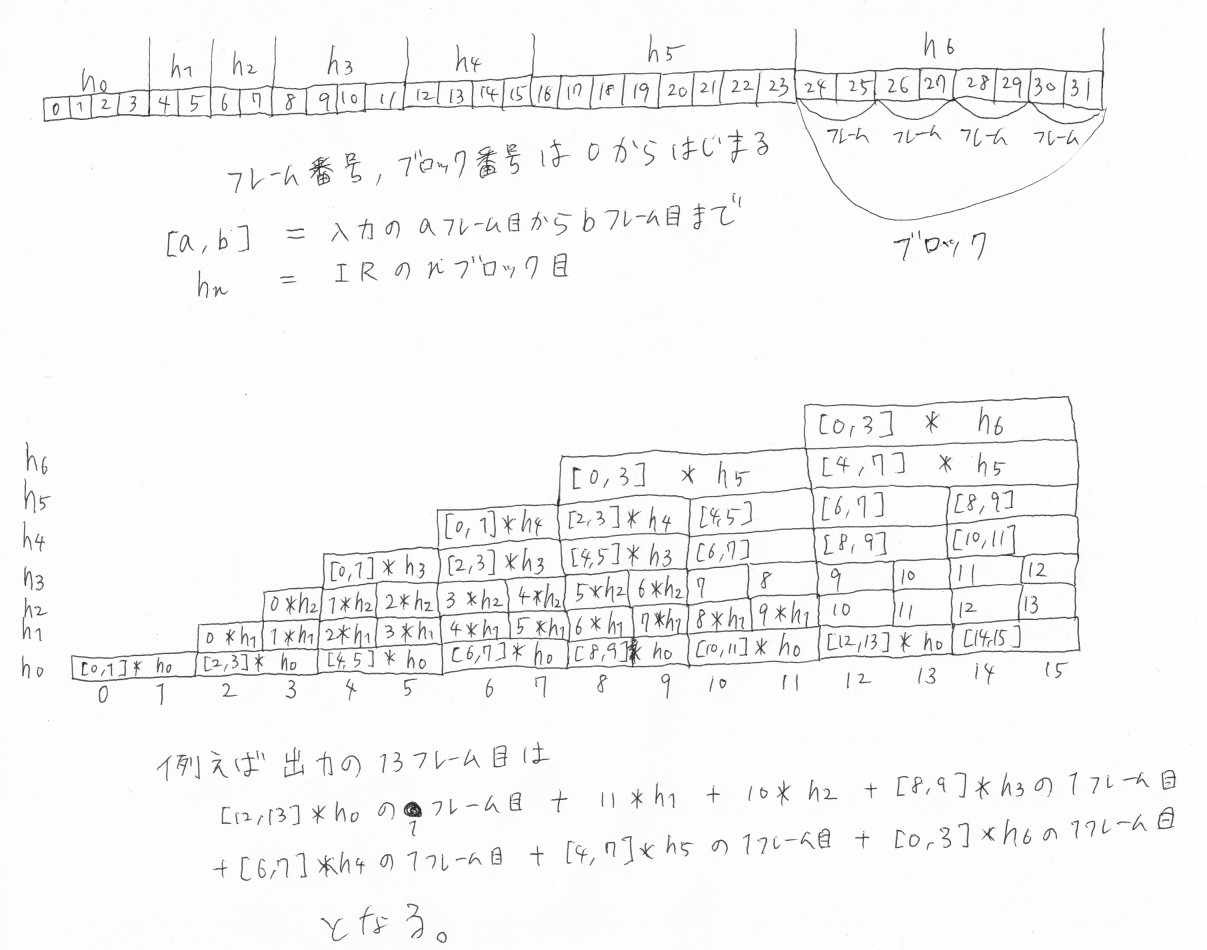 h0 h1 h2 h3 h4 h5 h6
0 1 2 3 4 5 6 7 8 9 10 11 12 13 14 15 16 17 18 19 20 21 22 23 24 25 26 27 28 29 30 31
フレーム フレーム フレーム フレーム
ブロック
フレーム番号,ブロック番号は0からはじまる
[a,b] = 入力のaフレーム目からbフレーム目まで
hn = IRのnブロック目
h6 [0,3] * h6
h5 [0,3] * h5 [4,7] * h5
h4 [0,1]*h4 [2,3]*h4 [4,5] [6,7] [8,9]
h3 [0,1]*h3 [2,3]*h3 [4,5]*h3 [6,7] [8,9] [10,11]
h2 0*h2 1*h2 2*h2 3*h2 4*h2 5*h2 6*h2 7 8 9 10 11 12
h1 0*h1 1*h1 2*h1 3*h1 4*h1 5*h1 6*h1 7*h1 8*h1 9*h1 10 11 12 13
h0 [0,1]*h0 [2,3]*h0 [4,5]*h0 [6,7]*h0 [8,9]*h0 [10,11]*h0 [12,13]*h0 [14,15]
0 1 2 3 4 5 6 7 8 9 10 11 12 13 14 15
例えば出力の13フレーム目は
[12,13]*h0の1フレーム目 + 11*h1 + 10*h2 + [8,9]*h3の1フレーム目
+[6,7]*h4の1フレーム目 + [4,7]*h5の1フレーム目 + [0,3]*h6の1フレーム目
となる。